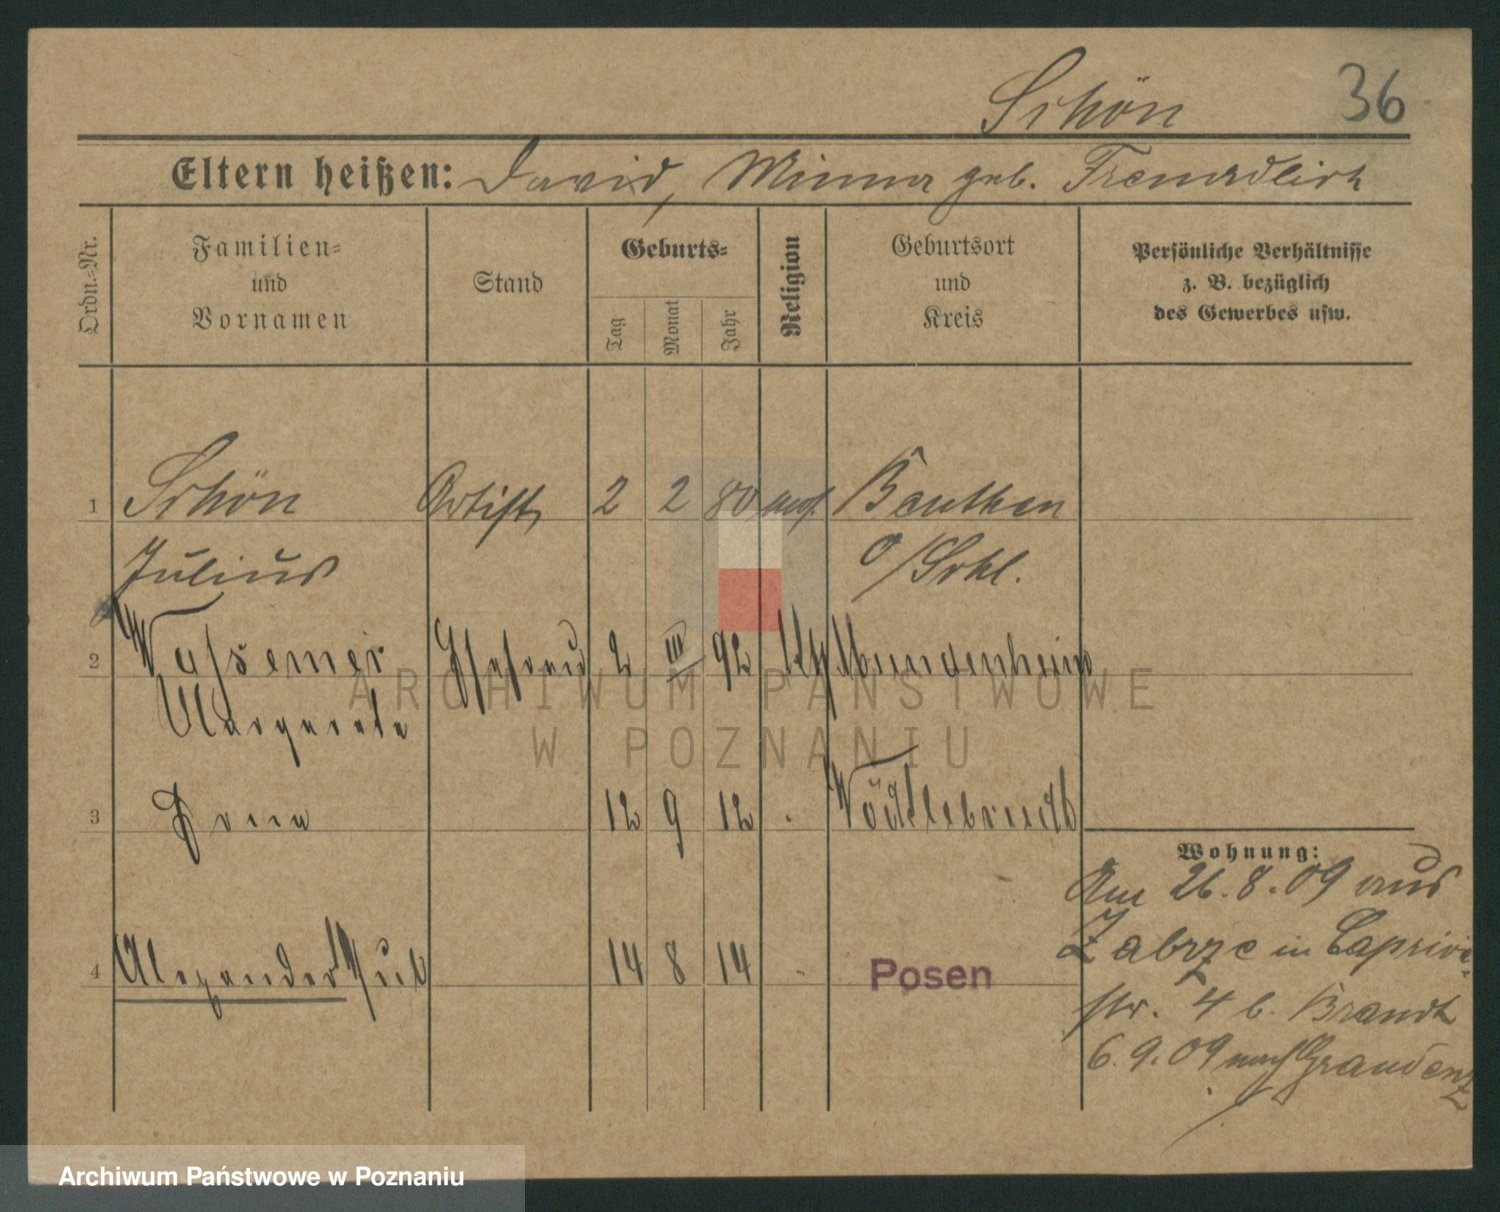 Schön 36
Eltern heißen: David, Minna geb.
Ordn.-Nr.
Familien-
und
Vornamen
Stand
Geburts-
Tag
Monat
Jahr
Religion
Geburtsort
und
Kreis
Persönliche Verhältnisse
z. B. bezüglich
des Gewerbes usw.
1 Schön Artist 2 2 80 mos. Beuthen
Julius O/Schl.
2 Ehefrau 2 III 92
Margarete
3 12 9 12
4 Alexander 14 8 14 Posen
Wohnung:
Am 26.8.09 aus
Zabrze in Caprivi-
str. 4 b. Brandt
6.9.09 nach Graudenz
ARCHIWUM PAŃSTWOWE
W POZNANIU
Archiwum Państwowe w Poznaniu